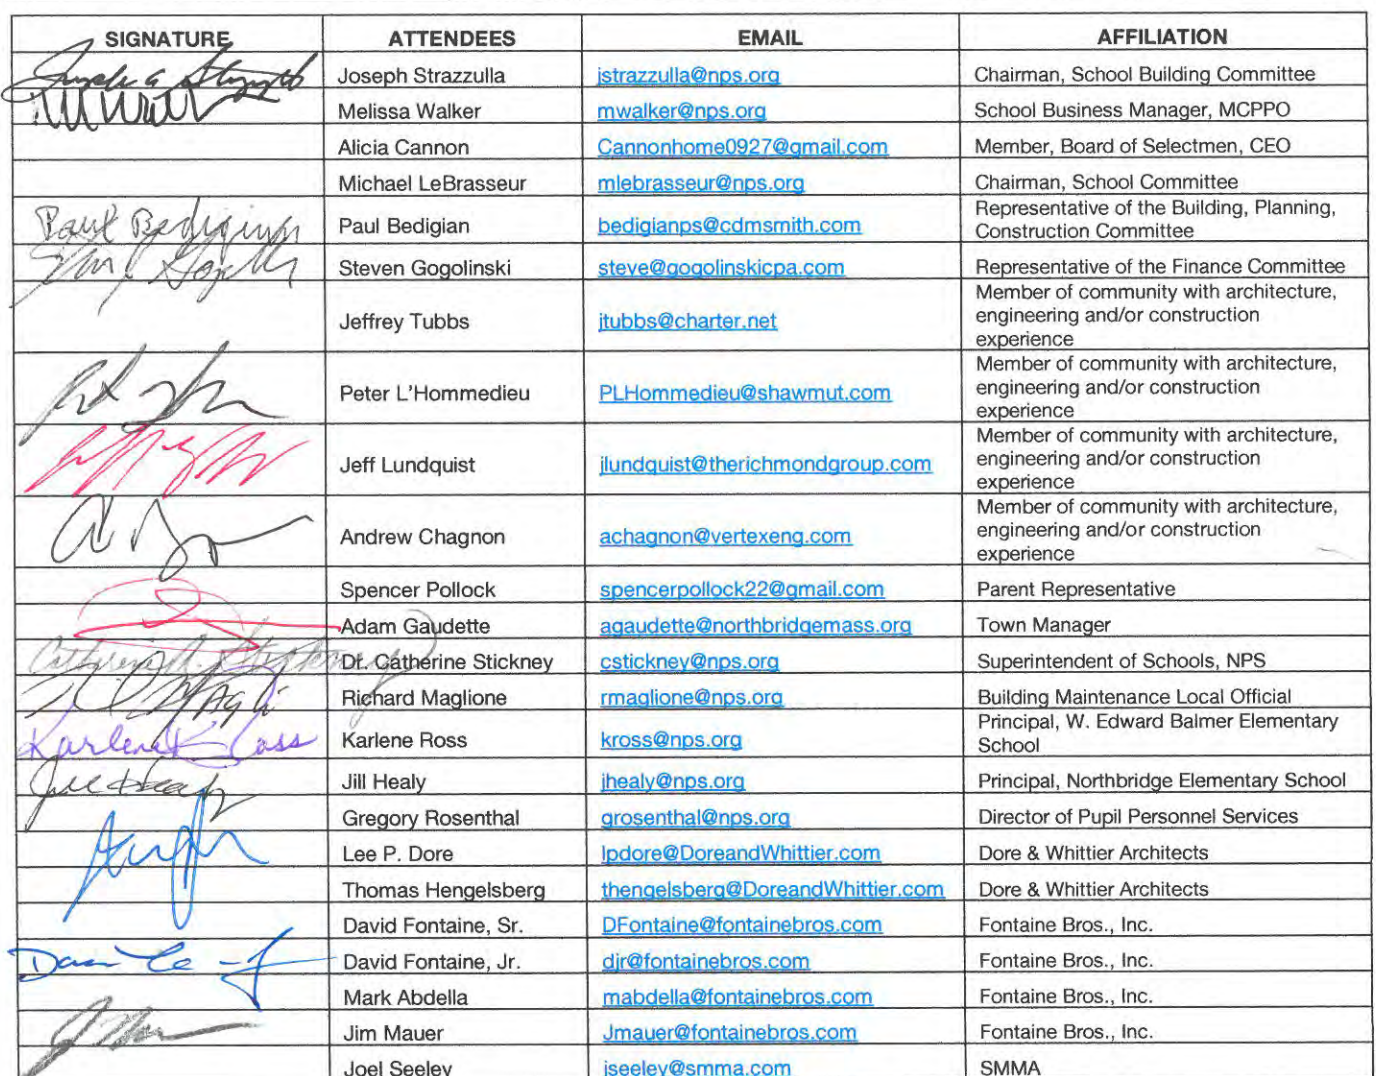 SIGNATURE ATTENDEES EMAIL AFFILIATION
Joseph Strazzulla jstrazzulla@nps.org Chairman, School Building Committee
Melissa Walker mwalker@nps.org School Business Manager, MCPPO
Alicia Cannon Cannonhome0927@gmail.com Member, Board of Selectmen, CEO
Michael LeBrasseur mlebrasseur@nps.org Chairman, School Committee
Paul Bedigian Paul Bedigian bedigianps@cdmsmith.com Representative of the Building, Planning,
Construction Committee
Steven Gogolinski steve@gogolinskicpa.com Representative of the Finance Committee
Jeffrey Tubbs jtubbs@charter.net Member of community with architecture,
engineering and/or construction
experience
Peter L'Hommedieu PLHommedieu@shawmut.com Member of community with architecture,
engineering and/or construction
experience
Jeff Lundquist jlundquist@therichmondgroup.com Member of community with architecture,
engineering and/or construction
experience
Andrew Chagnon achagnon@vertexeng.com Member of community with architecture,
engineering and/or construction
experience
Spencer Pollock spencerpollock22@gmail.com Parent Representative
Adam Gaudette agaudette@northbridgemass.org Town Manager
Catherine A. Stickney Dr. Catherine Stickney cstickney@nps.org Superintendent of Schools, NPS
Richard Maglione rmaglione@nps.org Building Maintenance Local Official
Karlene Ross Karlene Ross kross@nps.org Principal, W. Edward Balmer Elementary
School
Jill Healy Jill Healy jhealy@nps.org Principal, Northbridge Elementary School
Gregory Rosenthal grosenthal@nps.org Director of Pupil Personnel Services
Lee P. Dore lpdore@DoreandWhittier.com Dore & Whittier Architects
Thomas Hengelsberg thengelsberg@DoreandWhittier.com Dore & Whittier Architects
David Fontaine, Sr. DFontaine@fontainebros.com Fontaine Bros., Inc.
David Fontaine, Jr. djr@fontainebros.com Fontaine Bros., Inc.
Mark Abdella mabdella@fontainebros.com Fontaine Bros., Inc.
Jim Mauer Jmauer@fontainebros.com Fontaine Bros., Inc.
Joel Seeley jseeley@smma.com SMMA